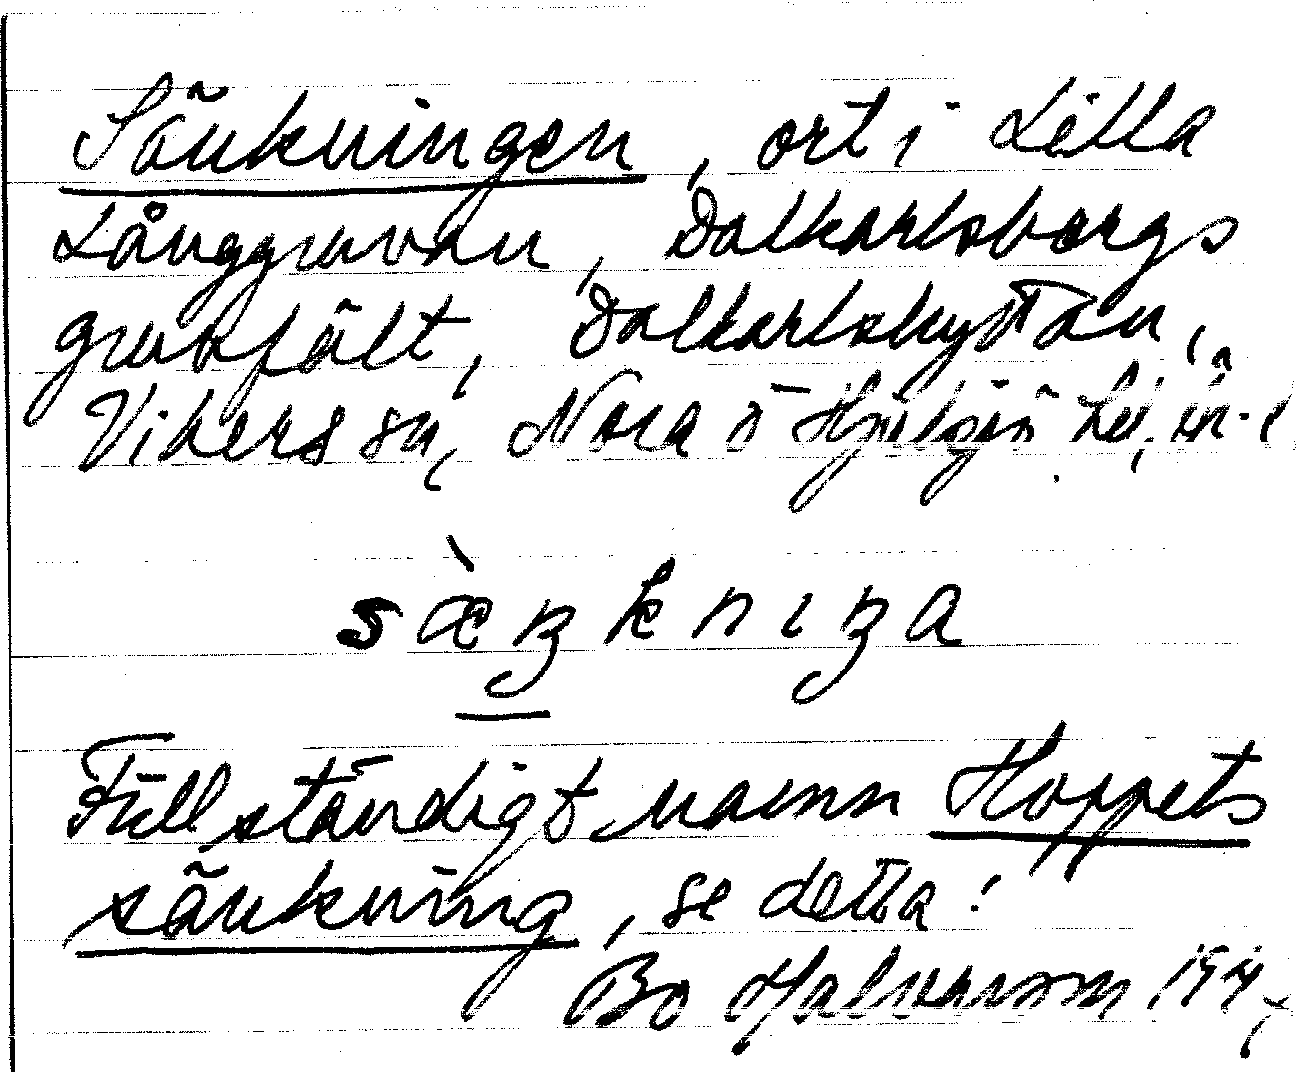 Sänkningen, ort i Lilla
Långgruvan, Dalkarlsbergs
gruvfält, Dalkarlshyttan,
Vikers sn, Nora o Hjulsjö
sæ̀ŋkniŋa
Fullständigt namn Hoppets
sänkning, se detta!
Bo Halvarsson